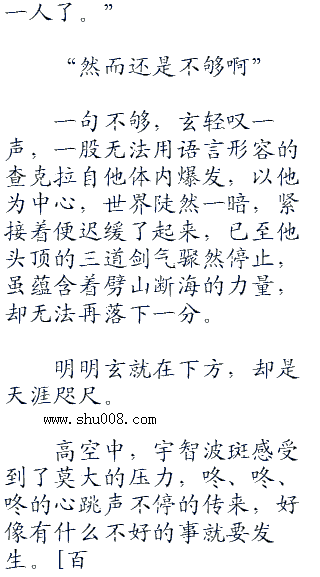 一人了。”
“然而还是不够啊”
一句不够，玄轻叹一
声，一股无法用语言形容的
查克拉自他体内爆发，以他
为中心，世界陡然一暗，紧
接着便迟缓了起来，已至他
头顶的三道剑气骤然停止，
虽蕴含着劈山断海的力量，
却无法再落下一分。
明明玄就在下方，却是
天涯咫尺。
www.shu008.com
高空中，宇智波斑感受
到了莫大的压力，咚、咚、
咚的心跳声不停的传来，好
像有什么不好的事就要发
生。[百